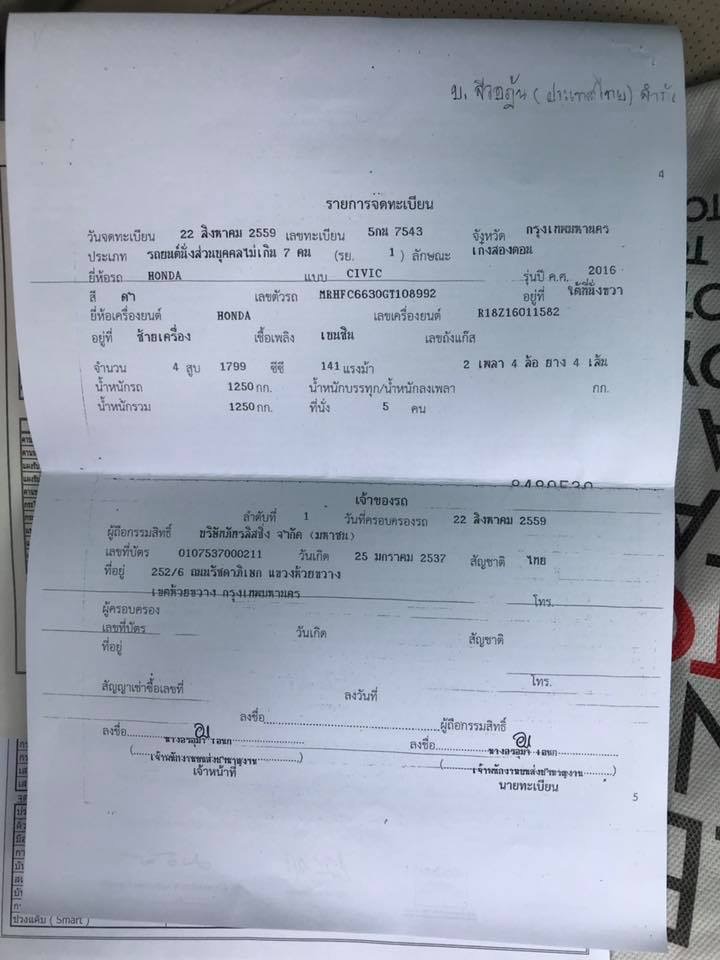 บ. สีวอฎัน (ประเทศไทย) จำกัด
4
รายการจดทะเบียน
วันจดทะเบียน 22 สิงหาคม 2559 เลขทะเบียน 5กน 7543 จังหวัด กรุงเทพมหานคร
ประเภท รถยนต์นั่งส่วนบุคคลไม่เกิน 7 คน (รย. 1 ) ลักษณะ เก๋งสองตอน
ยี่ห้อรถ HONDA แบบ CIVIC รุ่นปี ค.ศ. 2016
สี ดำ เลขตัวรถ MRHFC6630GT108992 อยู่ที่ ใต้ที่นั่งขวา
ยี่ห้อเครื่องยนต์ HONDA เลขเครื่องยนต์ R18Z16011582
อยู่ที่ ซ้ายเครื่อง เชื้อเพลิง เบนซิน เลขถังแก๊ส
จำนวน 4 สูบ 1799 ซีซี 141 แรงม้า 2 เพลา 4 ล้อ ยาง 4 เส้น
น้ำหนักรถ 1250 กก. น้ำหนักบรรทุก/น้ำหนักลงเพลา กก.
น้ำหนักรวม 1250 กก. ที่นั่ง 5 คน
เจ้าของรถ
ลำดับที่ 1 วันที่ครอบครองรถ 22 สิงหาคม 2559
ผู้ถือกรรมสิทธิ์ บริษัทภัทรลิสซิ่ง จำกัด (มหาชน)
เลขที่บัตร 0107537000211 วันเกิด 25 มกราคม 2537 สัญชาติ ไทย
ที่อยู่ 252/6 ถนนรัชดาภิเษก แขวงห้วยขวาง
เขตห้วยขวาง กรุงเทพมหานคร โทร.
ผู้ครอบครอง
เลขที่บัตร วันเกิด สัญชาติ
ที่อยู่
โทร.
สัญญาเช่าซื้อเลขที่ ลงวันที่
ลงชื่อ ผู้ถือกรรมสิทธิ์
ลงชื่อ ลงชื่อ
(เจ้าพนักงานขนส่งชำนาญงาน) (เจ้าพนักงานขนส่งชำนาญงาน)
เจ้าหน้าที่ นายทะเบียน
5
ปวงแค็บ ( Smart )